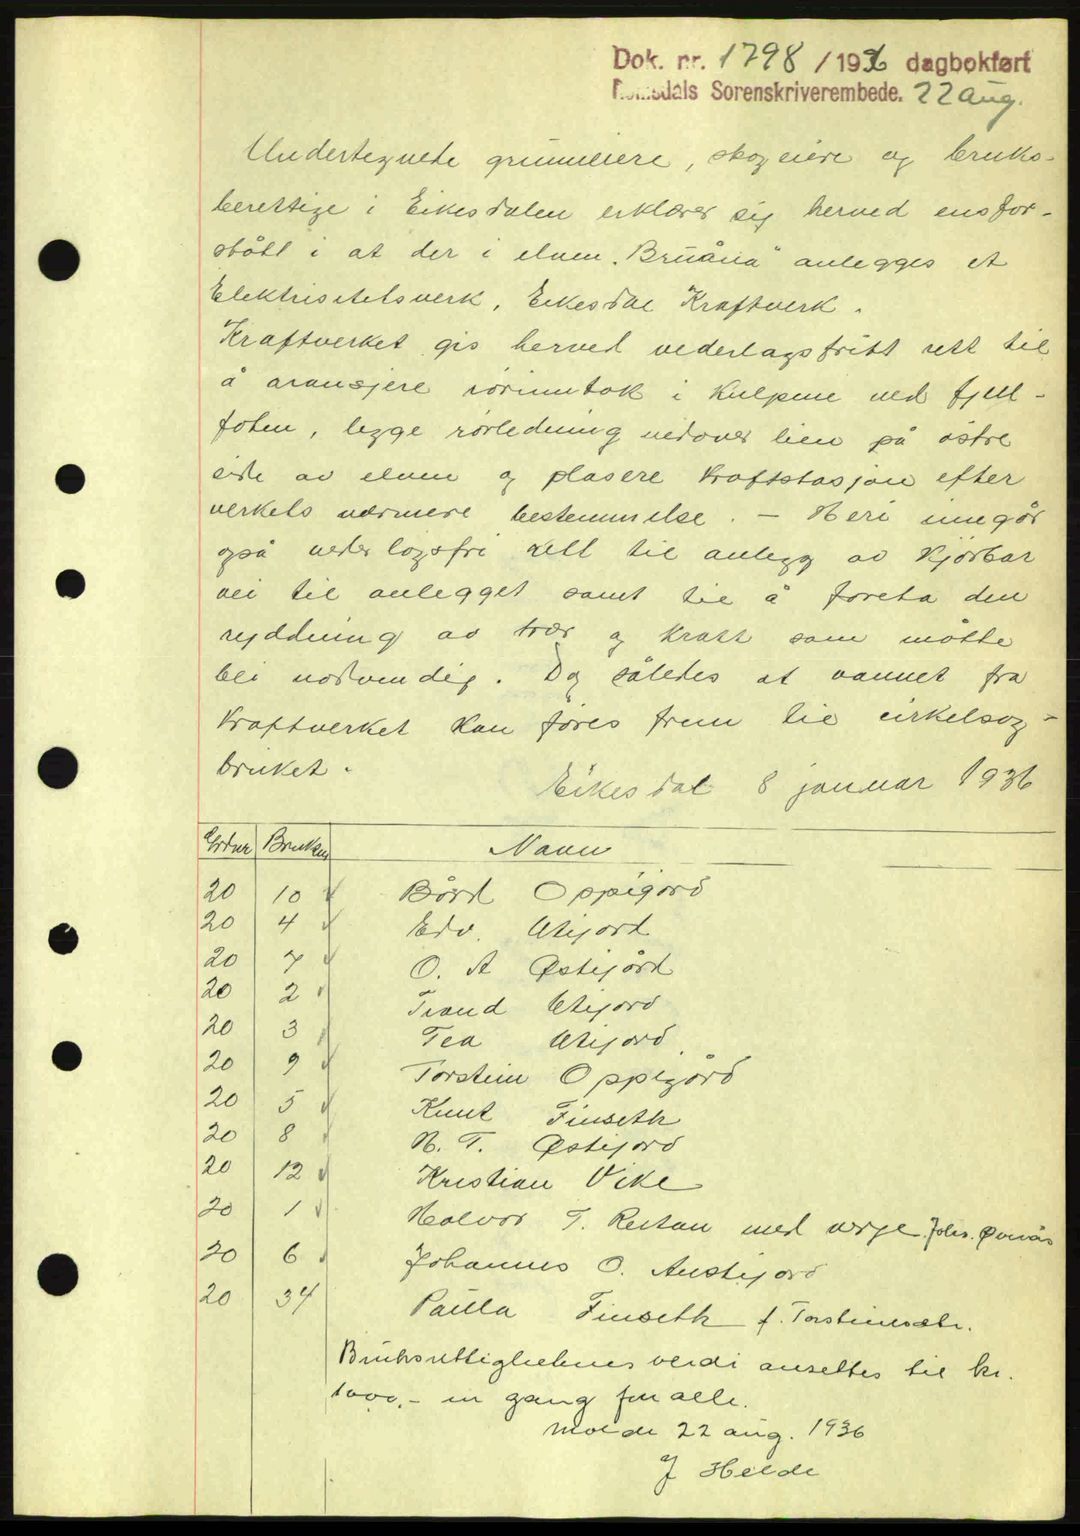 Dok. nr. 1798 / 1936 dagbokført
Romsdals Sorenskriverembede. 22 aug.
Undertegnede grunneiere, skogeiere og bruks-
berettige i Eikesdalen erklærer sig herved ensfor-
stått i at der i elven "Bruåna" anlegges et
Elektrisitetsverk, Eikesdal Kraftverk.
Kraftverket gis herved vederlagsfritt rett til
å aransjere rörinntak i Kulpene ved fjell-
foten, legge rörledning nedover lien på östre
side av elven og plasere Kraftstasjon efter
verkets nærmere bestemmelse. — Heri inngår
også vederlagsfri rett til anlegg av Kjörbar
vei til anlegget samt til å foreta den
ryddning av trær og Kratt som måtte
bli nödvendig. Og således at vannet fra
Kraftverket Kan föres frem til cirkelsag-
bruket.
Eikesdal 8 januar 1936
Grdnr Bruksnr Navn
20 10 Bård Oppigård
20 4 Edv. Utijord
20 7 O. A Østijård
20 2 Trand Utijord
20 3 Tea Utijord
20 9 Torstein Oppigård
20 5 Knut Finseth
20 8 H. T. Østijord
20 12 Kristian Vike
20 1 Halvor T. Reitan med verge Johs.
20 6 Johannes O. Austijord
20 34 Paula Finseth f. Torsteinsdtr.
Bruksrettighetenes verdi ansettes til kr.
1000,- en gang for alle.
Molde 22 aug. 1936
J Helde